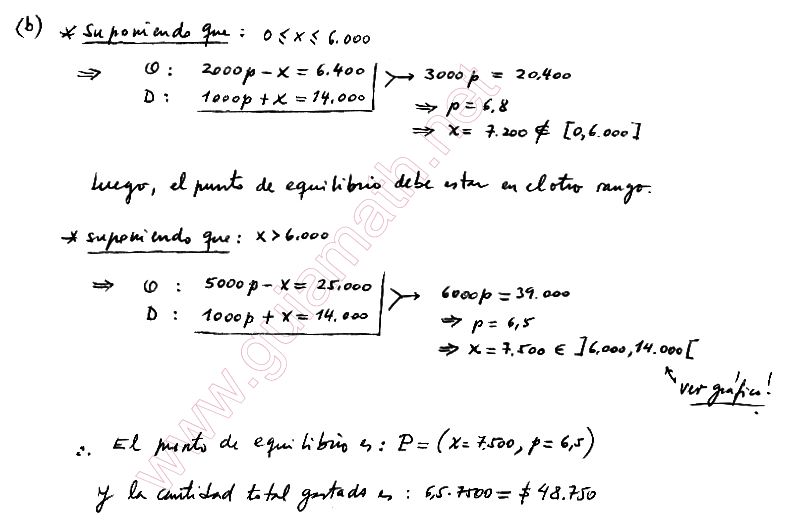 (b) * Suponiendo que : 0 ≤ x ≤ 6.000
⇒ O : 2000p - x = 6.400 → 3000p = 20,400
D : 1000p + x = 14.000 ⇒ p = 6,8
⇒ x = 7.200 ∉ [0,6.000]
luego, el punto de equilibrio debe estar en el otro rango.
* suponiendo que : x > 6.000
⇒ O : 5000p - x = 25.000 → 6000p = 39.000
D : 1000p + x = 14.000 ⇒ p = 6,5
⇒ x = 7.500 ∈ ]6,000,14.000[
ver gráfico!
∴ El punto de equilibrio es : P = (x = 7.500, p = 6,5)
y la cantidad total gastada es : 6,5 · 7500 = $ 48.750
www.guiamath.net